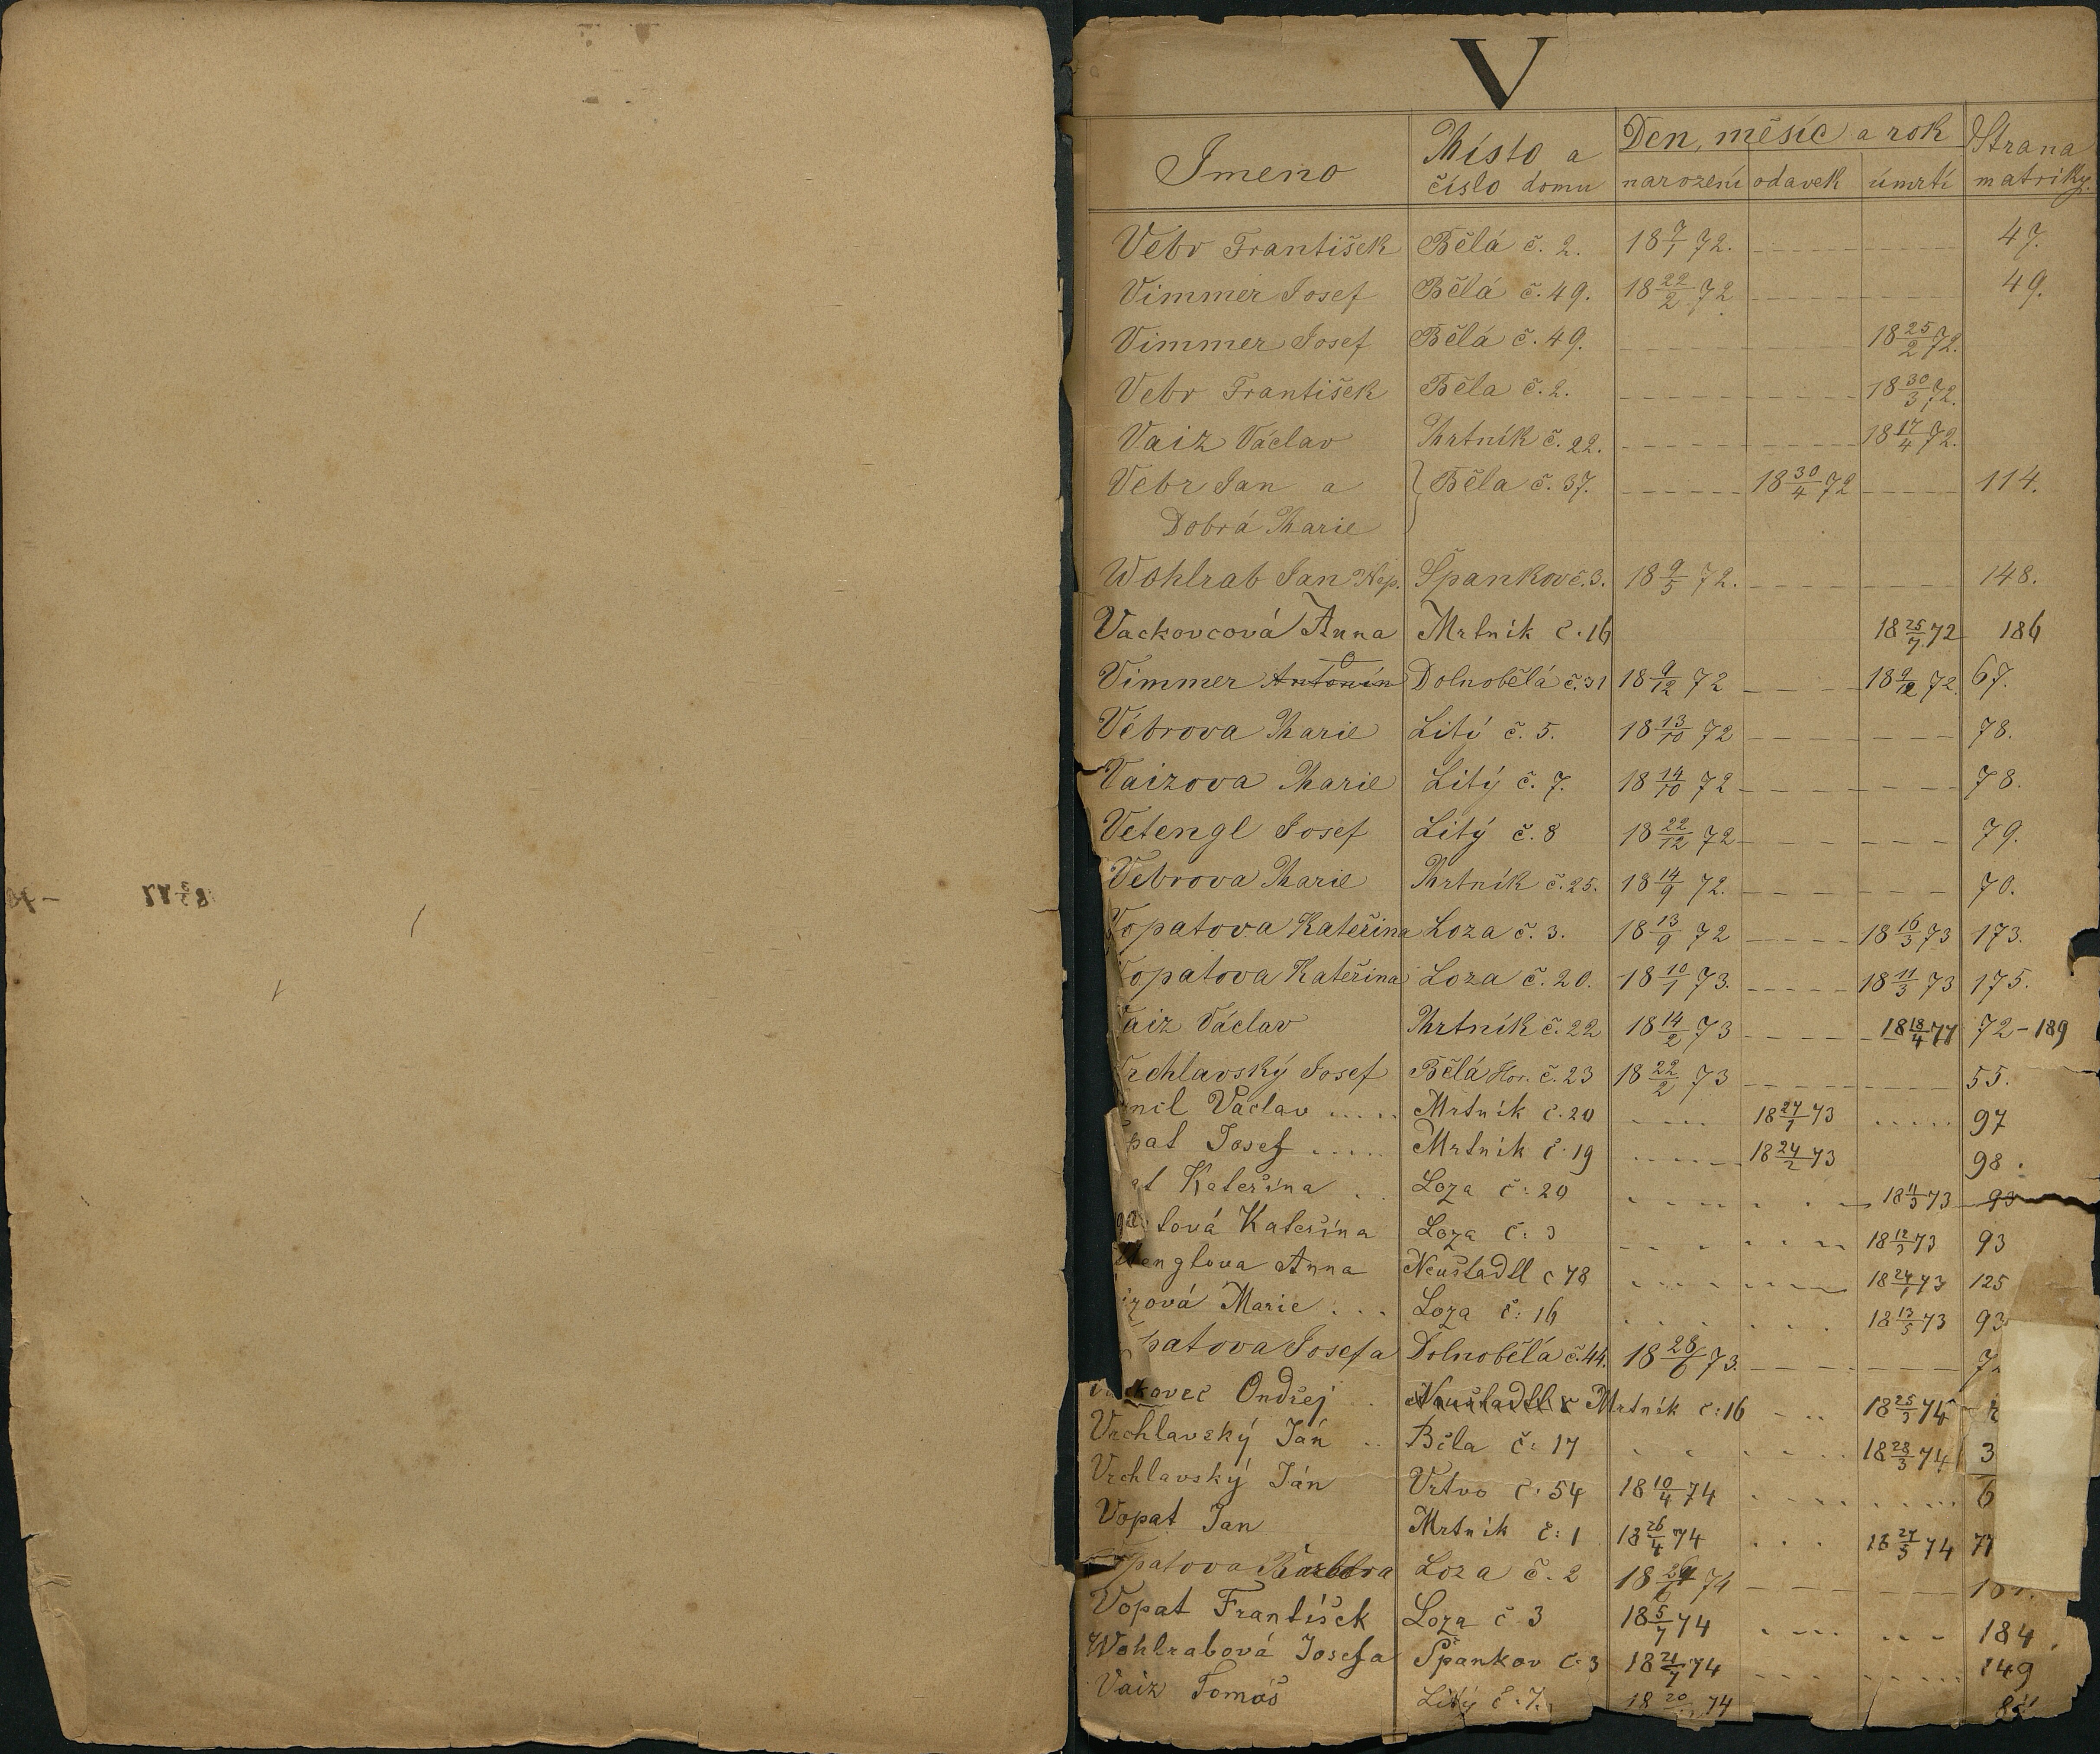 V
Jmeno Místo a číslo domu Den, měsíc a rok Strana matriky
narození odavek úmrtí
Vébr František Bělá č. 2. 18 7/1 72. 47.
Vimmer Josef Bělá č. 49. 18 22/2 72 49.
Vimmer Josef Bělá č. 49. 18 25/2 72.
Vebr František Běla č. 2. 18 30/3 72.
Vaiz Václav Mrtník č. 22. 18 17/4 72.
Vebr Jan a Běla č. 37. 18 30/4 72 114.
Dobrá Marie
Wohlrab Jan Nep. Špankov č. 3. 18 9/5 72. 148.
Vackovcová Anna Mrtník č. 16 18 25/7 72 186
Vimmer Antonín Dolnobělá č. 31 18 9/12 72 18 9/12 72. 67.
Vébrova Marie Litý č. 5. 18 13/10 72 78.
Vaizova Marie Litý č. 7. 18 14/10 72 78.
Vetengl Josef Litý č. 8 18 22/12 72 79.
Vebrova Marie Mrtník č. 25. 18 14/9 72. 70.
Vopatova Kateřina Loza č. 3. 18 13/9 72 18 16/3 73 173.
opatova Kateřina Loza č. 20. 18 10/1 73. 18 11/3 73 175.
aiz Václav Mrtník č. 22 18 14/2 73 18 18/4 77 72 - 189
rchlavský Josef Bělá Hor. č. 23 18 22/2 73 55.
Václav Mrtník č. 20 18 27/1 73 97
pat Josef Mrtník č. 19 18 24/2 73 98.
at Kateřina Loza č. 20 18 11/3 73 93
tová Kateřina Loza č. 3 18 12/3 73 93
englova Anna Neustadtl č 78 73 125
zová Marie Loza č. 16 18 13/5 73 93
patova Josefa Dolnobělá č. 44. 18 28/6 73.
kovec Ondřej Neustadtl č Mrtník č: 16 18 25/3 74
Vrchlavský Ján Běla č: 17 18 28/3 74 3
Vrchlavský Ján Vrtvo č. 54 18 10/4 74 6
Vopat Jan Mrtník č: 1 18 26/4 74 18 27/5 74 77
patova Barbora Loza č. 2 74
Vopat František Loza č 3 18 5/7 74 184
Wohlrabová Josefa Špankov č. 3 18 21/7 74 149
Vaiz Tomáš Litý č. 7. 18 20 74